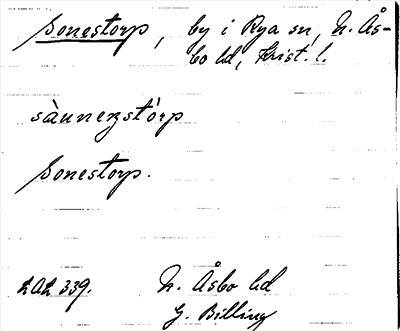 Sonestorp, by i Rya sn, N. Ås-
bo hd, Krist. l.
sàunenstórp
Sonestorp.
LAL 339. N. Åsbo hd
G. Billing